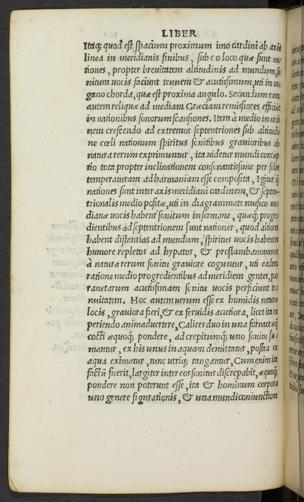 LIBER
Itaq; quod est spacium proximum imo cardini ab axis
linea in meridianis finibus, sub eo loco quæ sunt na
tiones, propter breuitatem altitudinis ad mundum, so
nitum uocis faciunt tenuem & acutissimum, uti in or
gano chorda, quæ est proxima angulo. Secundum eam
autem reliquæ ad mediam Græciam remissiores efficiunt
in nationibus sonorum scansiones. Item à medio in ordi
nem crescendo ad extremos septentriones sub altitudi
ne cœli nationum spiritus sonitibus grauioribus à
natura rerum exprimuntur, ita uidetur mundi concep
tio tota propter inclinationem consonantissime per solis
temperaturam ad harmoniam esse composita. Igitur quæ
nationes sunt inter axis meridiani cardinem, & septen
trionalis medio positæ, uti in diagrammate musico me
dianæ uocis habent sonitum in sermone, quæq; progre
dientibus ad septentrionem sunt nationes, quod altiores
habent distantias ad mundum, spiritus uocis habentes
humore repletos ad hypatas, &
à natura rerum sonitu grauiore coguntur, uti eadem
ratione medio progredientibus ad meridiem gentes, pa
ranetarum acutissimam sonitu uocis perficiunt te
nuitatem. Hoc autem uerum esse ex humidis naturæ
locis, grauiora fieri, & ex feruidis acutiora, licet ita ex
periendo animaduertere, Calices duo in una fornace æque
cocti æquoq; pondere, ad crepitumq; uno sonitu su
mantur, ex his unus in aquam demittatur, postea ex
aqua eximatur, tunc utriq; tangantur, Cum enim ita
factũ fuerit, largiter inter eos sonitus discrepabit, æquoq;
pondere non poterunt esse, ita & hominum corpora
uno genere figurationis, & una mundi coniunctione